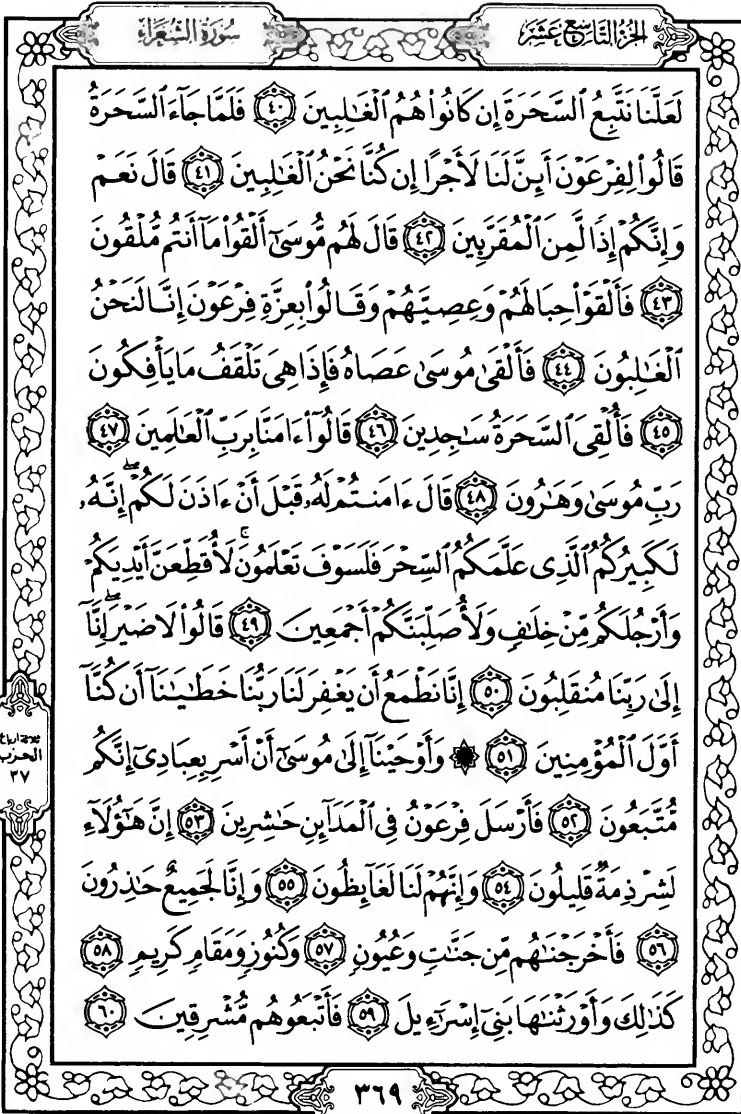 الجزء التاسع عشر
سورة الشعراء
لَعَلَّنَا نَتَّبِعُ ٱلسَّحَرَةَ إِن كَانُوا۟ هُمُ ٱلْغَٰلِبِينَ ٤٠ فَلَمَّا جَآءَ ٱلسَّحَرَةُ
قَالُوا۟ لِفِرْعَوْنَ أَئِنَّ لَنَا لَأَجْرًا إِن كُنَّا نَحْنُ ٱلْغَٰلِبِينَ ٤١ قَالَ نَعَمْ
وَإِنَّكُمْ إِذًا لَّمِنَ ٱلْمُقَرَّبِينَ ٤٢ قَالَ لَهُم مُّوسَىٰٓ أَلْقُوا۟ مَآ أَنتُم مُّلْقُونَ
٤٣ فَأَلْقَوْا۟ حِبَالَهُمْ وَعِصِيَّهُمْ وَقَالُوا۟ بِعِزَّةِ فِرْعَوْنَ إِنَّا لَنَحْنُ
ٱلْغَٰلِبُونَ ٤٤ فَأَلْقَىٰ مُوسَىٰ عَصَاهُ فَإِذَا هِىَ تَلْقَفُ مَا يَأْفِكُونَ
٤٥ فَأُلْقِىَ ٱلسَّحَرَةُ سَٰجِدِينَ ٤٦ قَالُوٓا۟ ءَامَنَّا بِرَبِّ ٱلْعَٰلَمِينَ ٤٧
رَبِّ مُوسَىٰ وَهَٰرُونَ ٤٨ قَالَ ءَامَنتُمْ لَهُۥ قَبْلَ أَنْ ءَاذَنَ لَكُمْ ۖ إِنَّهُۥ
لَكَبِيرُكُمُ ٱلَّذِى عَلَّمَكُمُ ٱلسِّحْرَ فَلَسَوْفَ تَعْلَمُونَ ۚ لَأُقَطِّعَنَّ أَيْدِيَكُمْ
وَأَرْجُلَكُم مِّنْ خِلَٰفٍ وَلَأُصَلِّبَنَّكُمْ أَجْمَعِينَ ٤٩ قَالُوا۟ لَا ضَيْرَ ۖ إِنَّآ
إِلَىٰ رَبِّنَا مُنقَلِبُونَ ٥٠ إِنَّا نَطْمَعُ أَن يَغْفِرَ لَنَا رَبُّنَا خَطَٰيَٰنَآ أَن كُنَّآ
أَوَّلَ ٱلْمُؤْمِنِينَ ٥١ ۞ وَأَوْحَيْنَآ إِلَىٰ مُوسَىٰٓ أَنْ أَسْرِ بِعِبَادِىٓ إِنَّكُم
مُّتَّبَعُونَ ٥٢ فَأَرْسَلَ فِرْعَوْنُ فِى ٱلْمَدَآئِنِ حَٰشِرِينَ ٥٣ إِنَّ هَٰٓؤُلَآءِ
لَشِرْذِمَةٌ قَلِيلُونَ ٥٤ وَإِنَّهُمْ لَنَا لَغَآئِظُونَ ٥٥ وَإِنَّا لَجَمِيعٌ حَٰذِرُونَ
٥٦ فَأَخْرَجْنَٰهُم مِّن جَنَّٰتٍ وَعُيُونٍ ٥٧ وَكُنُوزٍ وَمَقَامٍ كَرِيمٍ ٥٨
كَذَٰلِكَ وَأَوْرَثْنَٰهَا بَنِىٓ إِسْرَٰٓءِيلَ ٥٩ فَأَتْبَعُوهُم مُّشْرِقِينَ ٦٠
ثلاثة أرباع
الحزب
٣٧
٣٦٩